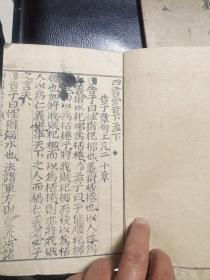 告子章句上凡二十章
告子曰性猶杞柳也義猶桮棬也以人性為
仁義猶以杞柳為桮棬孟子曰子能順杞柳
之性而以為桮棬乎將戕賊杞柳而後以為桮棬
也如將戕賊杞柳而以為桮棬則亦將戕賊
人以為仁義與率天下之人而禍仁義者必子
之言夫
告子曰性猶湍水也決諸東方則東流決諸